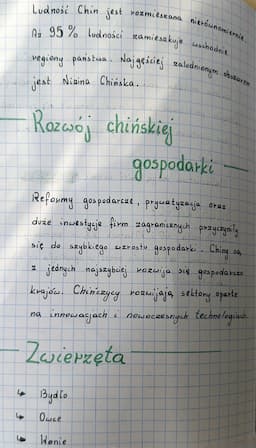 Ludność Chin jest rozmieszkana nierównomiernie
Aż 95% ludności zamieszkuje wschodnie
regiony państwa. Najgęściej zaludnionym obszarem
jest Nizina Chińska.
Rozwój chińskiej
gospodarki
Reformy gospodarcze, prywatyzacja oraz
duże inwestycje firm zagranicznych przyczyniły
się do szybkiego wzrostu gospodarki. Chiny są
z jednych najszybciej rozwija się gospodarczo
krajów. Chińczycy rozwijają sektory oparte
na innowacjach i nowoczesnych technologiach
Zwierzęta
↳ Bydło
↳ Owce
↳ Konie